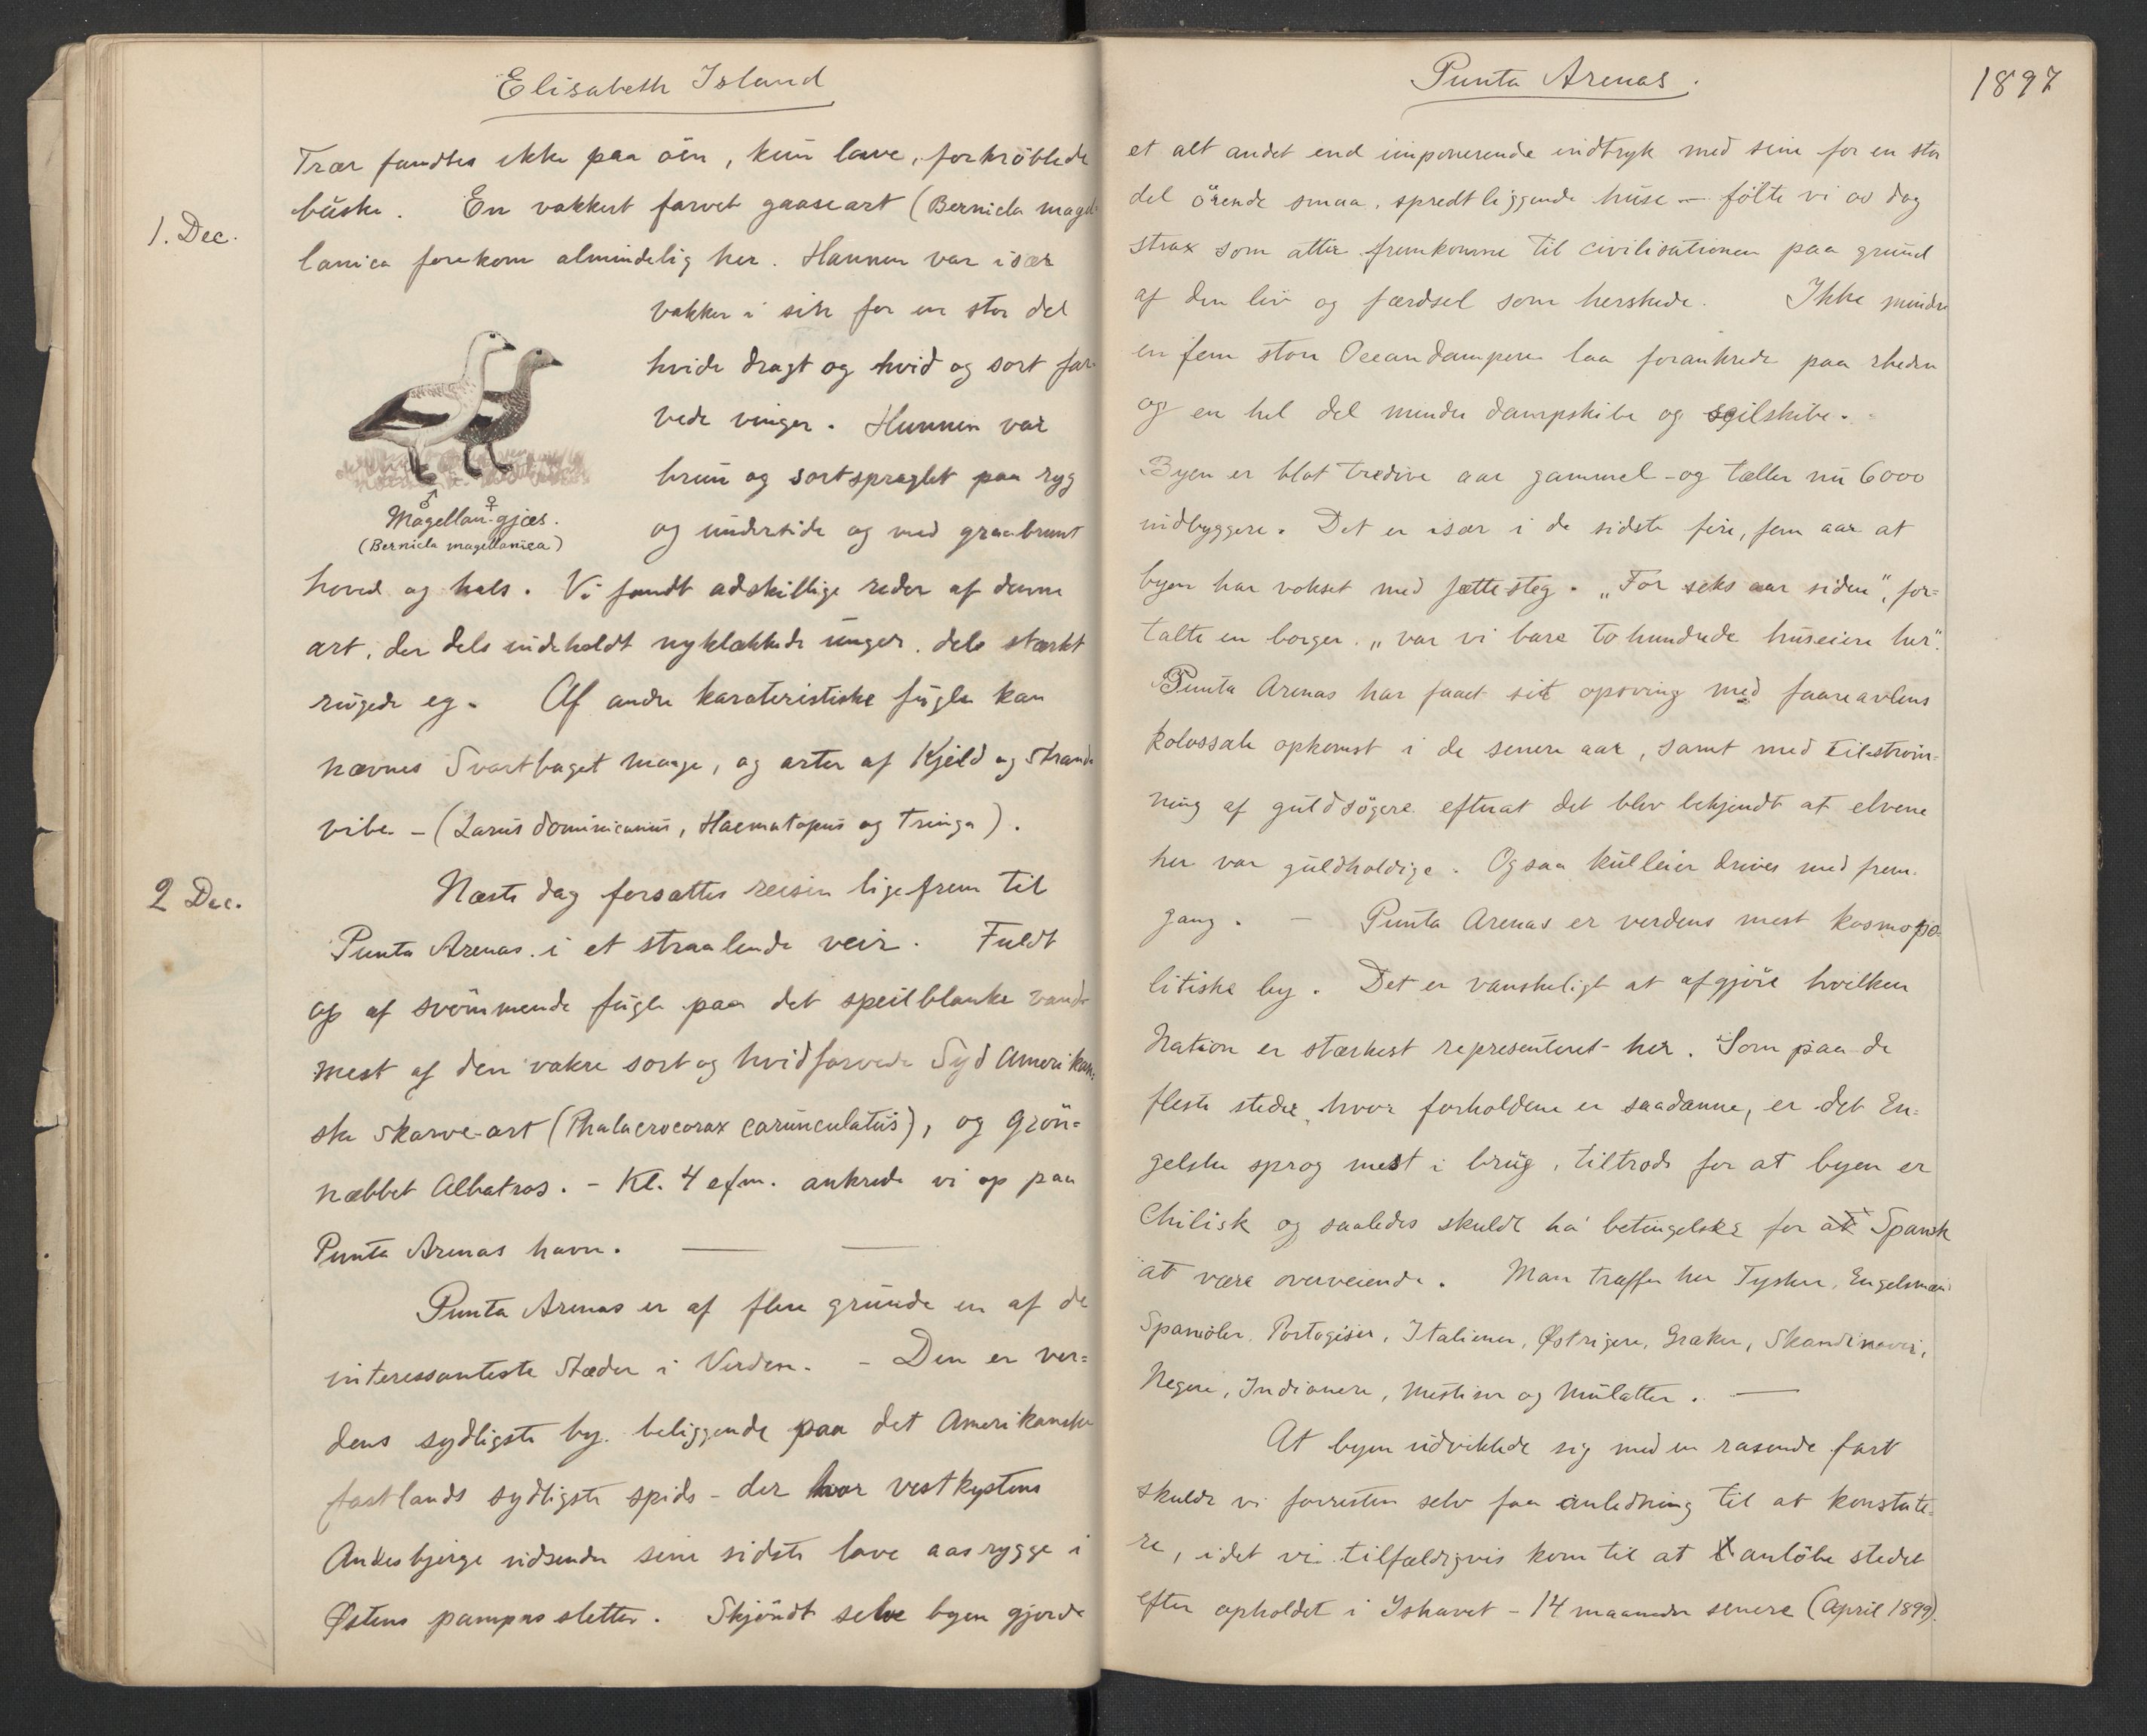 Elisabeth Island
Trær fandtes ikke paa öen, kun lave, forkröblede
büske. En vakkert farvet gaaseart (Bernicla magel-
1. Dec.
lanica forekom almindelig her. Hannen var især
vakker i sin for en stor del
hvide dragt og hvid og sort far-
vede vinger. Hunnen var
brun og sortspraglet paa ryg
og underside og med graabrunt
♂ ♀
Magellan-gjæs.
(Bernicla magellanica)
hoved og hals. Vi fandt adskillige reder af denne
art, der dels indeholdt nyklækkede unger, dels stærkt
rugede eg. Af andre karateristiske fugle kan
nævnes Svartbaget maage, og arter af Kjeld og Strand-
vibe - (Larus dominicanus, Haematopus og Tringa).
2 Dec.
Næste dag forsattes reisen lige frem til
Punta Arenas i et straalende veir. Fuldt
op af svömmende fugle paa det speilblanke vand
mest af den vakre sort og hvidfarvede Syd Amerikan-
ske Skarve-art (Phalacrocorax carunculatus), og grön-
næbbet Albatros. - Kl. 4 efm. ankrede vi op paa
Punta Arenas havn. — —
Punta Arenas er af flere grunde en af de
interessanteste Stæder i Verden. - Den er ver-
dens sydligste by, beliggende paa det Amerikanske
fastlands sydligste spids - der hvor vestkystens
Andesbjerge udsender sine sidste lave aasrygge i
Østens pampas sletter. Skjöndt selve byen gjorde
Punta Arenas.
1897
et alt andet end imponerende indtryk med sine for en stor
del örende smaa, spredt liggende huse — fölte vi os dog
strax som atter fremkomne til civilisationen paa grund
af den liv og færdsel som herskede. Ikke mindre
en fem store Oceandampere laa forankrede paa rheden
og en hel del mindre dampskibe og seilskibe.
Byen er blot tredive aar gammel - og tæller nu 6000
indbyggere. Det er især i de sidste fire, fem aar at
byen har vokset med jættesteg. „For seks aar siden", for-
talte en borger, „var vi bare to hundrede huseiere her".
Punta Arenas har faaet sit opsving med faareavlens
kolossale opkomst i de senere aar, samt med tilström-
ning af guldsögere efterat det blev bekjendt at elvene
her var guldholdige. Ogsaa kulleier drives med frem-
gang. — Punta Arenas er verdens mest kosmopo-
litiske by. Det er vanskeligt at afgjöre hvilken
Nation er stærkest representeret her. Som paa de
fleste steder, hvor forholdene er saadanne, er det En-
gelske sprog mest i brug, tiltrods for at byen er
Chilisk og saaledes skulde ha betingelse for at Spansk
at være overveiende. Man træffer her Tyskere, Engelsmænd
Spanioler, Portogiser, Italiener, Østrigere, Græker, Skandinaver,
Negere, Indianere, Mestiser og Mulatter. —
At byen udviklede sig med en rasende fart
skulde vi forresten selv faa anledning til at konstate-
re, idet vi tilfældigvis kom til at anlöbe stedet
efter opholdet i Ishavet - 14 maaneder senere (April 1899).